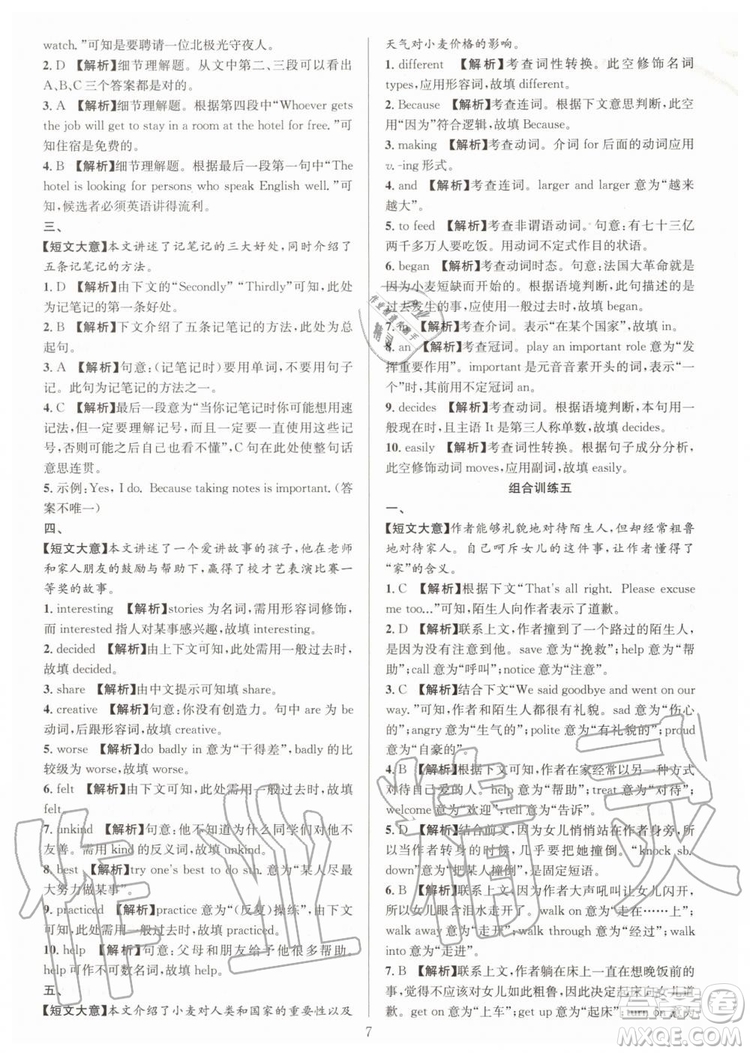 watch.”可知是要聘请一位北极光守夜人。
2. D 【解析】细节理解题。从文中第二、三段可以看出
A,B,C三个答案都是对的。
3. A 【解析】细节理解题。根据第四段中“Whoever gets
the job will get to stay in a room at the hotel for free.”可
知住宿是免费的。
4. B 【解析】细节理解题。根据最后一段第一句中“The
hotel is looking for persons who speak English well.”可
知,候选者必须英语讲得流利。
三、
【短文大意】本文讲述了记笔记的三大好处,介绍了
五条记笔记的方法。
1. D 【解析】由下文的“Secondly”“Thirdly”可知,此处
为记笔记的第一条好处。
2. B 【解析】下文介绍了五条记笔记的方法,此处为总
起句。
3. A 【解析】句意:(记笔记时)要用单词,不要用长句
子记。此句为记笔记的方法之一。
4. C 【解析】最后一段意为“当你记笔记时可能想用速
记法,但你一定要理解记号,不要用太多的记号或缩
写,否则后来你也许不能理解”,C句在此处使整句话
意思连贯。
5. 示例:Yes, I do. Because taking notes is important.(答
案不唯一)
四、
【短文大意】本文讲述了一个爱讲故事的孩子,他在老师
和家人朋友的鼓励与帮助下,赢得了校才艺表演比赛一
等奖的故事。
1. interesting 【解析】stories为名词,需用形容词修饰,
而interested指人对某事感兴趣,故填interesting。
2. decided 【解析】由上下文可知,需用一般过去时,故
填decided。
3. share 【解析】由下文中可知填share。
4. creative 【解析】句意:你没有创造力。句中are是be
动词,后跟形容词,故填creative。
5. worse 【解析】do badly in意为“干得差”,badly的比
较级为worse,故填worse。
6. felt 【解析】由下文可知,此处需用一般过去时,故填
felt。
7. unkind 【解析】句意:他不知道为什么同学们对他不
友善。需用kind的反义词,故填unkind。
8. best 【解析】try one's best to do sth.意为“某人尽最
大努力做某事”,故填best。
9. practiced 【解析】practice意为“(反复)操练”,由下
文可知,需用一般过去时,故填practiced。
10. help 【解析】句意:父母和朋友给予他很大帮助。
help可作不可数名词,故填help。
五、
【短文大意】本文介绍了小麦对人类和国家的重要性以及
天气对小麦价格的影响。
1. different 【解析】考查词性转换。此空修饰名词
types,应用形容词,故填different。
2. Because 【解析】考查连词。根据下文意思判断,此空
用“因为”符合逻辑,故填Because。
3. making 【解析】考查动词。介词for后面的动词应用
v. -ing形式。
4. and 【解析】考查连词。larger and larger意为“越来
越大”。
5. to feed 【解析】考查非谓语动词。句意:有七十三亿
两千多万人要吃饭。应用动词不定式作目的状语。
6. began 【解析】考查动词时态。句意:法国大革命就是
因为小麦短缺而开始的。根据语境可知,此句描述的是
过去发生的事,且主句用了过去时,故填began。
7. in 【解析】考查介词。表示“在某个国家”,故填in。
8. an 【解析】考查冠词。play an important role意为“发
挥重要作用”。important是元音音素开头的单词,故
填an。
9. decides 【解析】考查动词。根据语境判断,本句用一
般现在时,且主语It是第三人称单数,故填decides。
10. easily 【解析】考查词性转换。根据句子成分分析,
此空修饰动词moves,应用副词,故填easily。
组合训练五
一、
【短文大意】作者能够礼貌地对待陌生人,但却经常粗鲁
地对待家人。作者呵斥女儿的事情,让作者懂得了
“家”的含义。
1. C 【解析】根据下文“That's all right. Please excuse
me too...”可知,陌生人和作者互相表示了道歉。
2. D 【解析】联系上文,作者撞到了一个路过的陌生人,
故为没有注意到他。save意为“挽救”;help意为“帮
助”;call意为“呼叫”;notice意为“注意”。
3. C 【解析】结合下文“We said goodbye and went on our
way.”可知,作者和陌生人都很有礼貌。sad意为“伤心
的”;angry意为“生气的”;polite意为“有礼貌的”;proud
意为“自豪的”。
4. B 【解析】根据下文可知,作者在家经常以另一种方式
对待自己的家人。meet意为“遇到”;treat意为“对待”;
welcome意为“欢迎”;tell意为“告诉”。
5. D 【解析】结合前文,因为女儿悄悄站在作者身旁,所
以当作者转身时,几乎要把她撞倒。“knock sb.
down”意为“把某人撞倒”,故选D。
6. B 【解析】结合前后文,因为作者大声吼叫让女儿闪开,
所以女儿眼含泪水走开了。walk on意为“走在……上”;
walk away意为“走开”;walk into意为“走进”;walk past
意为“经过”。
7. B 【解析】联系上文,作者躺在床上一直没有入睡,
是因为意识到不该对女儿如此粗鲁,决定起床向女儿
道歉。get on意为“上车”;get up意为“起床”;get down
7